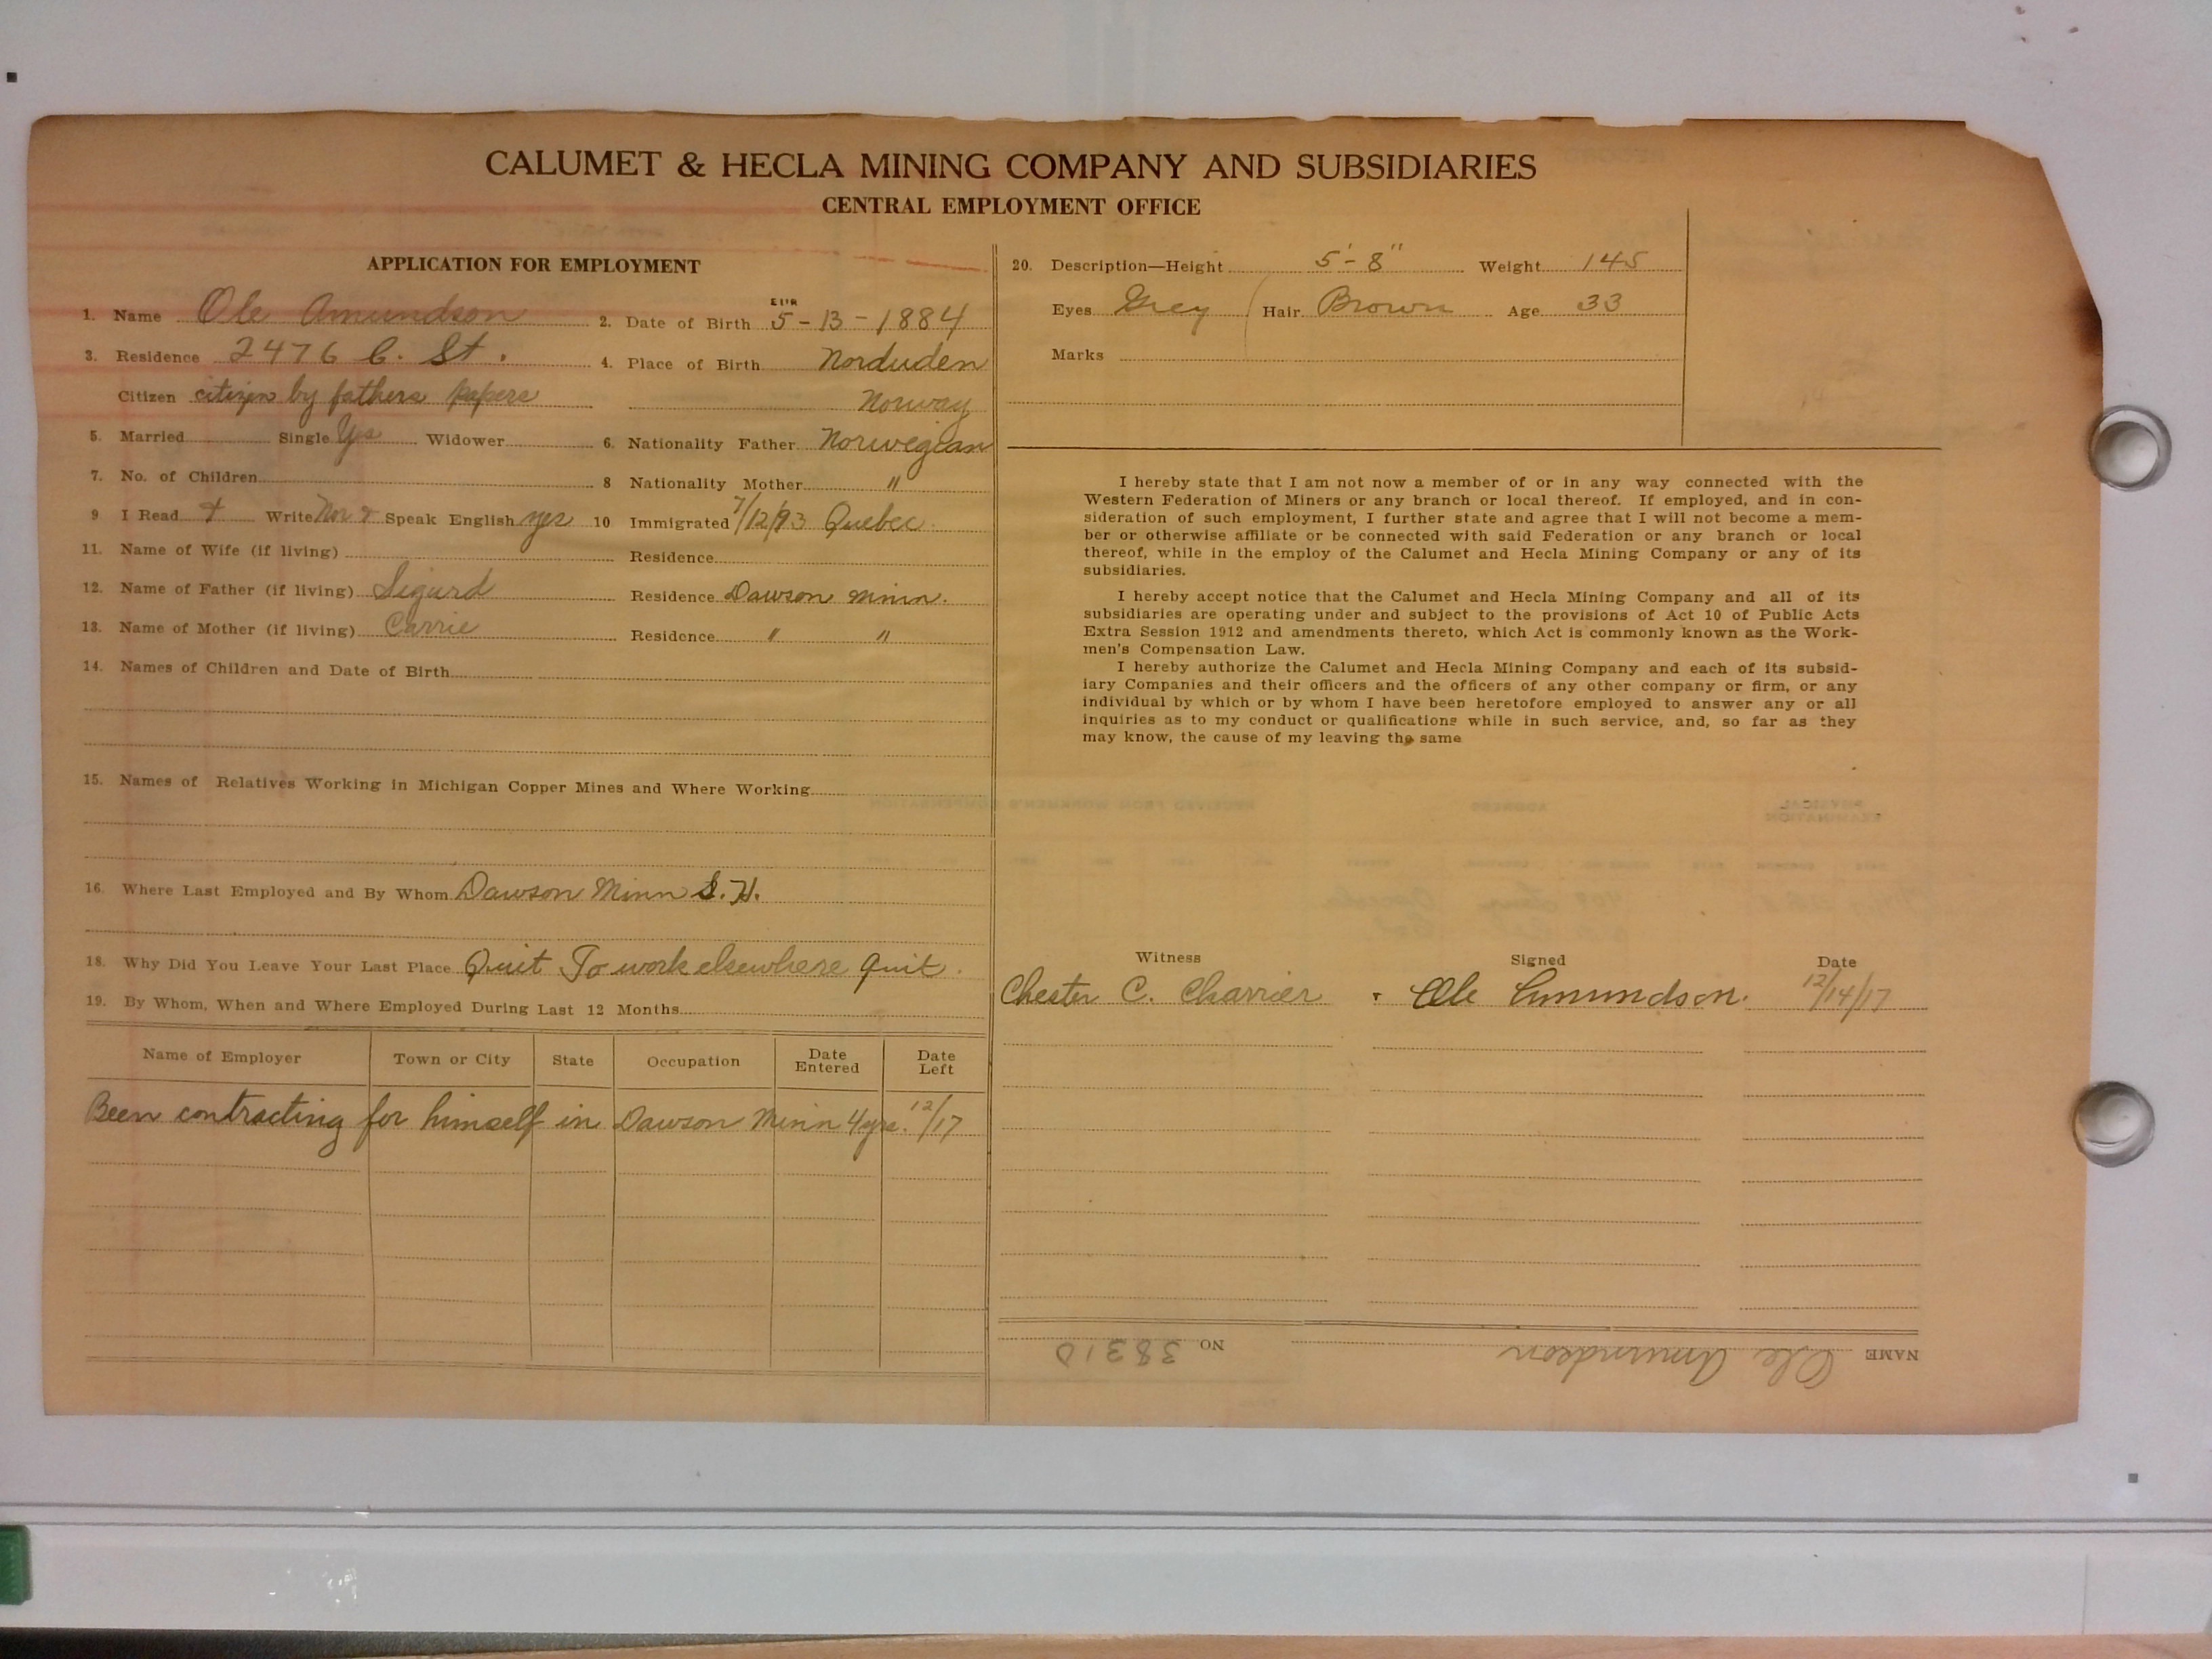 CALUMET & HECLA MINING COMPANY AND SUBSIDIARIES
CENTRAL EMPLOYMENT OFFICE
APPLICATION FOR EMPLOYMENT
1. Name Ole Amundson 2. Date of Birth 5-13-1884
3. Residence 2476 C. St. 4. Place of Birth Norduden
Citizen citizen by fathers papers Norway
5. Married Single Yes Widower 6. Nationality Father Norwegian
7. No. of Children 8 Nationality Mother "
9 I Read + Write Nor & Speak English yes 10 Immigrated 7/12/93 Quebec
11. Name of Wife (if living) Residence
12. Name of Father (if living) Sigurd Residence Dawson Minn.
13. Name of Mother (if living) Carrie Residence " "
14. Names of Children and Date of Birth
15. Names of Relatives Working in Michigan Copper Mines and Where Working
16. Where Last Employed and By Whom Dawson Minn S. H.
18. Why Did You Leave Your Last Place Quit To work elsewhere quit.
19. By Whom, When and Where Employed During Last 12 Months
Name of Employer Town or City State Occupation Date Entered Date Left
Been contracting for himself in Dawson Minn 4 yrs. 12/17
20. Description—Height 5'-8" Weight 145
Eyes Grey Hair Brown Age 33
Marks
I hereby state that I am not now a member of or in any way connected with the
Western Federation of Miners or any branch or local thereof. If employed, and in con-
sideration of such employment, I further state and agree that I will not become a mem-
ber or otherwise affiliate or be connected with said Federation or any branch or local
thereof, while in the employ of the Calumet and Hecla Mining Company or any of its
subsidiaries.
I hereby accept notice that the Calumet and Hecla Mining Company and all of its
subsidiaries are operating under and subject to the provisions of Act 10 of Public Acts
Extra Session 1912 and amendments thereto, which Act is commonly known as the Work-
men's Compensation Law.
I hereby authorize the Calumet and Hecla Mining Company and each of its subsid-
iary Companies and their officers and the officers of any other company or firm, or any
individual by which or by whom I have been heretofore employed to answer any or all
inquiries as to my conduct or qualifications while in such service, and, so far as they
may know, the cause of my leaving the same
Witness Signed Date
Chester C. Charrier Ole Amundson. 12/14/17
NAME Ole Amundson NO 38310